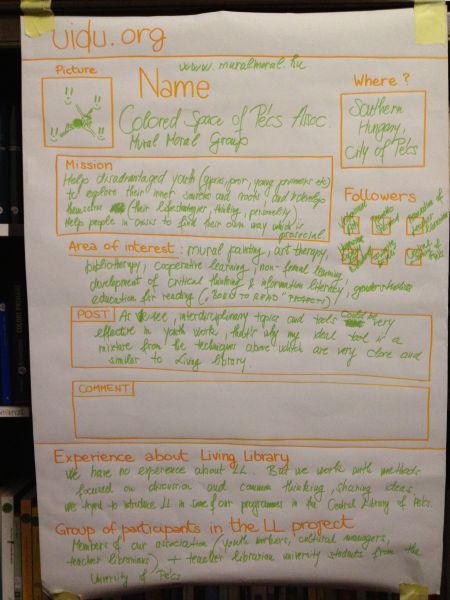 uidu.org
www.muralmoral.hu
Picture
Name
Where?
Colored Space of Pécs Assoc.
Mural Moral Group
Southern
Hungary,
City of Pécs
Mission
Help disadvantaged youth (gipsies, poor, young prisoners etc)
to explore their inner sources and roots, and redevelop
themselves (their lifestrategies, thinking, personality)
Help people in crisis to find their own way which is
prosocial
Followers
Area of interest: mural painting, art therapy,
bibliotherapy, cooperative learning, non-formal learning,
development of critical thinking & information literacy, gender-
education for reading ("BORN TO READ" PROJECTS)
POST
interdisciplinary topics and tools could be very
effective in youth work, that's why my ideal tool is a
mixture from the techniques above which are very close and
similar to Living library.
COMMENT
Experience about Living Library
We have no experience about LL. But we work with methods
focused on discussion and common thinking, sharing ideas.
We tried to introduce LL in some of our programmes in the Central Library of Pécs.
Group of participants in the LL project
Members of our association (youth workers, cultural managers,
teacher librarians) + teacher librarian university students from the
University of Pécs